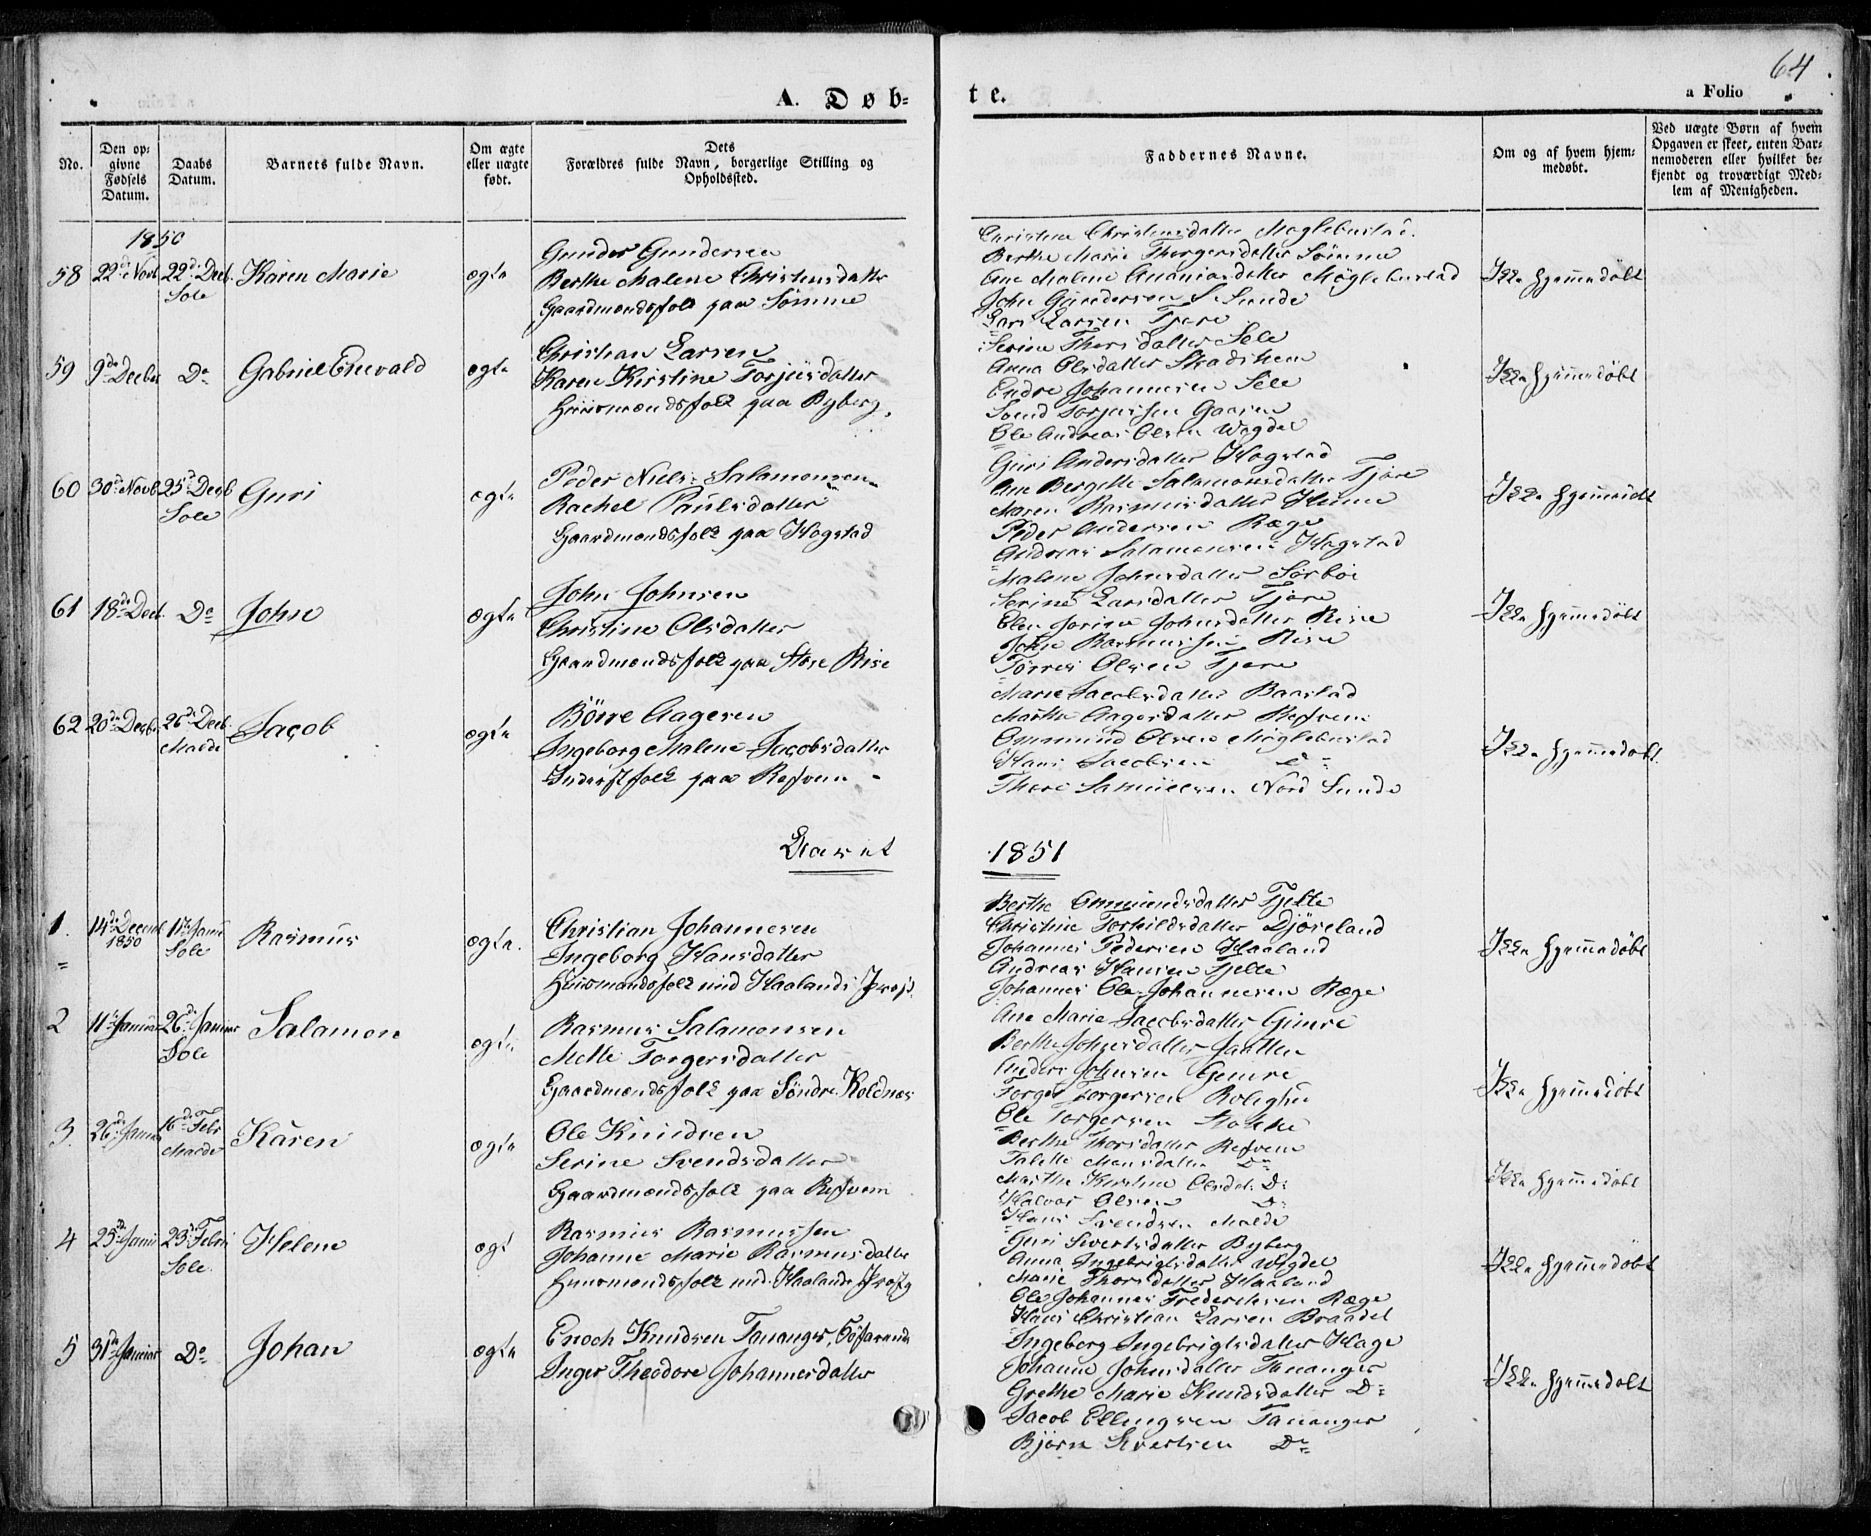 64
A. Døb-
te.
a Folio
No.
Den op-
givne
Fødsels
Datum.
Daabs
Datum.
Barnets fulde Navn.
Om ægte
eller uægte
født.
Dets
Forældres fulde Navn, borgerlige Stilling og
Opholdssted.
Faddernes Navne.
Om og af hvem hjem-
medøbt.
Ved uægte Børn af hvem
Opgaven er skeet, enten Bar-
nemoderen eller hvilket be-
kjendt og troværdigt Med-
lem af Menigheden.
1850
58 22de Novb 22d Decb. Karen Marie ægte
Sole
Gunder Gundersen
Berthe Malene Christensdatter
Gaardmandsfolk paa Sømme
Christine Christensdatter Møglebustad.
Berthe Marie Thorgersdatter Sømme
Ane Malene Ananiasdatter Møglebustad
John Gundersen S. Sunde
Lars Larsen Tjore
Ikke hjemmedøbt
59 9de Decbr Do Gabriel Enevald ægte
Christian Larsen
Karen Kirstine Torjusdatter
Huusmandsfolk paa Byberg.
Serine Thorsdatter Sele
Anna Olsdatter Skadshem
Endre Johannesen Sele
Svend Torjussen Gaasen
Ole Andreas Olsen Wigdel
Ikke hjemmedøbt
60 30d Novb 25d Decb Guri ægte
Sole
Peder Niels Salamonsen
Rachel Paulsdatter
Gaardmandsfolk paa Hogstad
Guri Andersdatter Hogstad
Ane Bergitte Salamonsdatter Tjore
Maren Rasmusdatter
Peder Andersen Ræge
Andreas Salamonsen Hogstad
Ikke hjemmedøbt
61 18de Decb. Do John ægte
John Johnsen
Christine Olsdatter
Gaardmandsfolk paa Store Risa
Malene Johnsdatter Sørboe
Serine Larsdatter Tjore
Elen Jorine Johnsdatter Risa
John Rasmussen Risa
Tørres Olsen Tjore
Ikke hjemmedøbt
62 20de Decbr 26de Decb. Jacob ægte
Malde
Børre Aagesen
Ingeborg Malene Jacobsdatter
Inderstfolk paa Refvem
Marie Jacobsdatter Baastad
Marthe Aagesdatter Refvem
Ommund Olsen Møglebustad
Hans Jacobsen Do
Thore Samuelsen Nord Sunde
Ikke hjemmedøbt.
Aaret
1851
1. 14de Decemb 1ste Janu Rasmus ægte.
1850 Sole
Christian Johannesen
Ingeborg Hansdatter
Huusmandsfolk und. Haalands Præstg.
Berthe Ommundsdatter Tjelte
Christine Torkildsdatter Djøseland
Johannes Pedersen Haaland
Andreas Hansen Tjelte
Johannes Ole Johannesen Ræge
Ikke hjemmedøbt
2 11te Januar 26de Januar Salamon ægte
Sole
Rasmus Salamonsen
Mette Torgersdatter
Gaardmandsfolk paa Søndre Koldnes
Ane Marie Jacobsdatter Gimre
Berthe Johnsdatter Jaatten
Anders Johnsen Gimre
Torger Torgersen Rolighed
Ole Torgersen
Ikke hjemmedøbt
3. 26de Januar 16de Febr Karen ægte
Malde
Ole Knudsen
Serine Svendsdatter
Gaardmandsfolk paa Refvem
Berthe Thorsdatter Refvem
Tabitte Monsdatter Do
Marthe Kirstine Olsdat. Do
Halvor Olsen Do
Hans Svendsen Malde
Ikke hjemmedøbt
4 25de Janu 23de Febr Helene ægt
Sole.
Rasmus Rasmussen
Johanne Marie Rasmusdatter
Huusmandsfolk und. Haalands Præstg
Guri Sivertsdatter Byberg
Anna Ingebrigtsdatter Wigdel
Marie Thorsdatter Haaland
Ole Johannes Frederiksen Ræge
Hans Christian Larsen Braadel
Ikke hjemmedøbt
5 31de Januar Do Johan ægte
Enoch Knudsen Tananger, Søfarende
Inger Theodore Johannesdatter
Ingeborg Ingebrigtsdatter Hage
Johanne Johnsdatter Tananger
Grethe Marie Knudsdatter Do
Jacob Ellingsen Tananger
Bjørn Sivertsen Do
Ikke hjemmedøbt